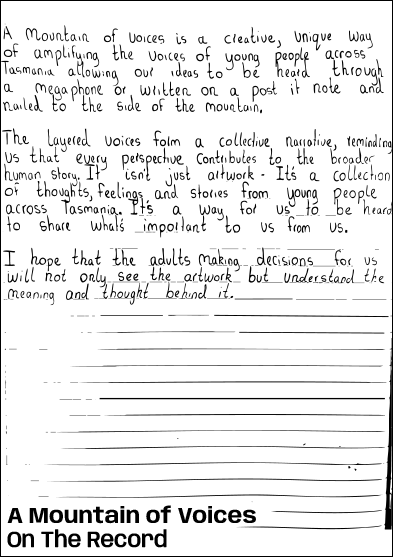 A Mountain of voices is a creative, unique way
of amplifying the voices of young people across
Tasmania allowing our ideas to be heard through
a megaphone or written on a post it note and
nailed to the side of the mountain.
The layered voices form a collective narrative, reminding
us that every perspective contributes to the broader
human story. It isn't just artwork - It's a collection
of thoughts, feelings and stories from young people
across Tasmania. It's a way for us to be heard
to share what's important to us from us.
I hope that the adults making decisions for us
will not only see the artwork but understand the
meaning and thought behind it.
A Mountain of Voices
On The Record